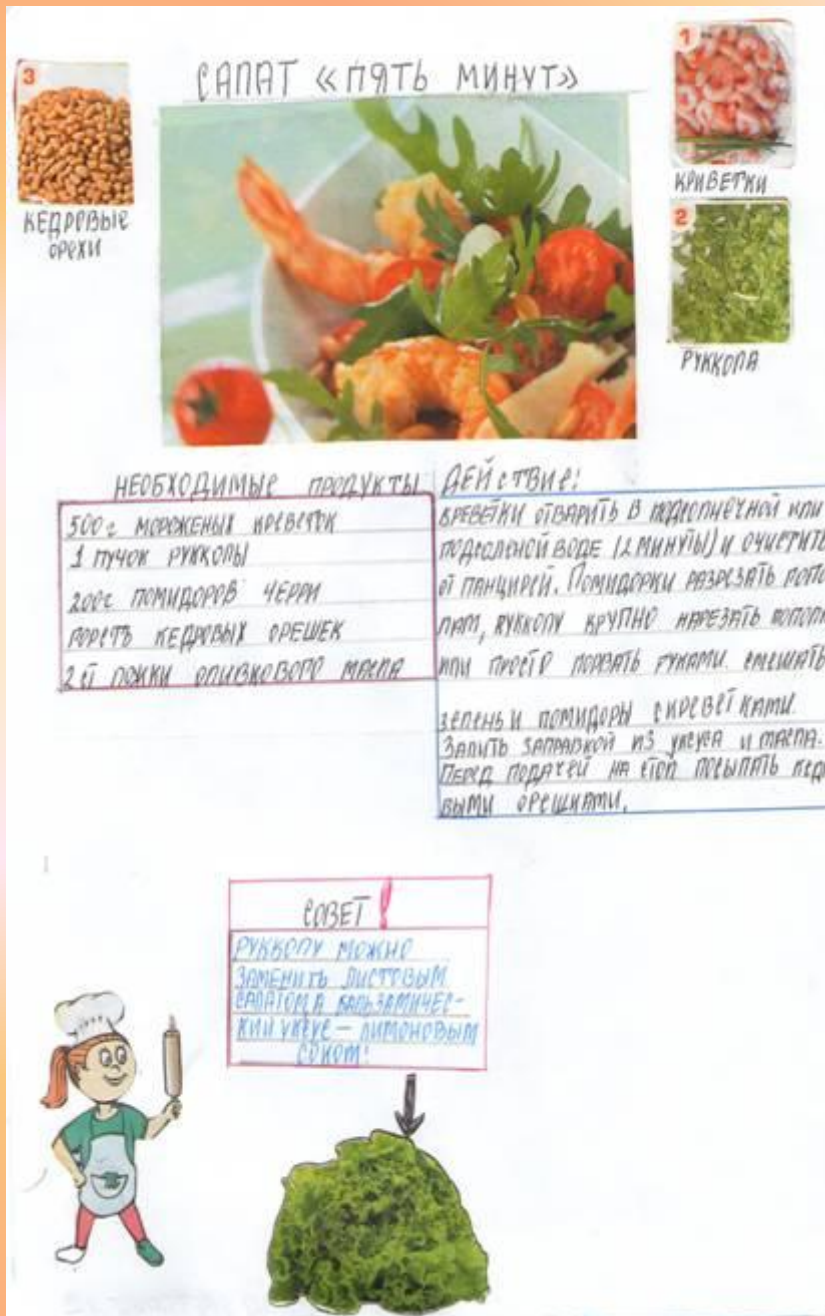 САЛАТ «ПЯТЬ МИНУТ»
3
КЕДРОВЫЕ
ОРЕХИ
1
КРИВЕТКИ
2
РУККОЛА
НЕОБХОДИМЫЕ ПРОДУКТЫ
500 г МОРОЖЕНЫХ КРЕВЕТОК
1 ПУЧОК РУККОЛЫ
200г ПОМИДОРОВ ЧЕРРИ
ГОРСТЬ КЕДРОВЫХ ОРЕШЕК
2 СТ ЛОЖКИ ОЛИВКОВОГО МАСЛА
ДЕЙСТВИЕ!
КРЕВЕТКИ ОТВАРИТЬ В ИЛИ
ПОДСОЛЕНОЙ ВОДЕ (2 МИНУТЫ) И ОЧИСТИТЬ
ОТ ПАНЦИРЕЙ. ПОМИДОРКИ РАЗРЕЗАТЬ ПОПО
ЛАМ, РУККОЛУ КРУПНО НАРЕЗАТЬ
ИЛИ ПРОСТО ПОРВАТЬ РУКАМИ. СМЕШАТЬ
ЗЕЛЕНЬ И ПОМИДОРЫ С КРЕВЕТКАМИ.
ЗАЛИТЬ ЗАПРАВКОЙ ИЗ УКСУСА И МАСЛА.
ПЕРЕД ПОДАЧЕЙ НА СТОЛ ПОСЫПАТЬ КЕД
ВЫМИ ОРЕШКАМИ.
СОВЕТ!
РУККОЛУ МОЖНО
ЗАМЕНИТЬ ЛИСТОВЫМ
САЛАТОМ, А БАЛЬЗАМИЧЕС-
КИЙ УКСУС – ЛИМОНОВЫМ
СОКОМ!